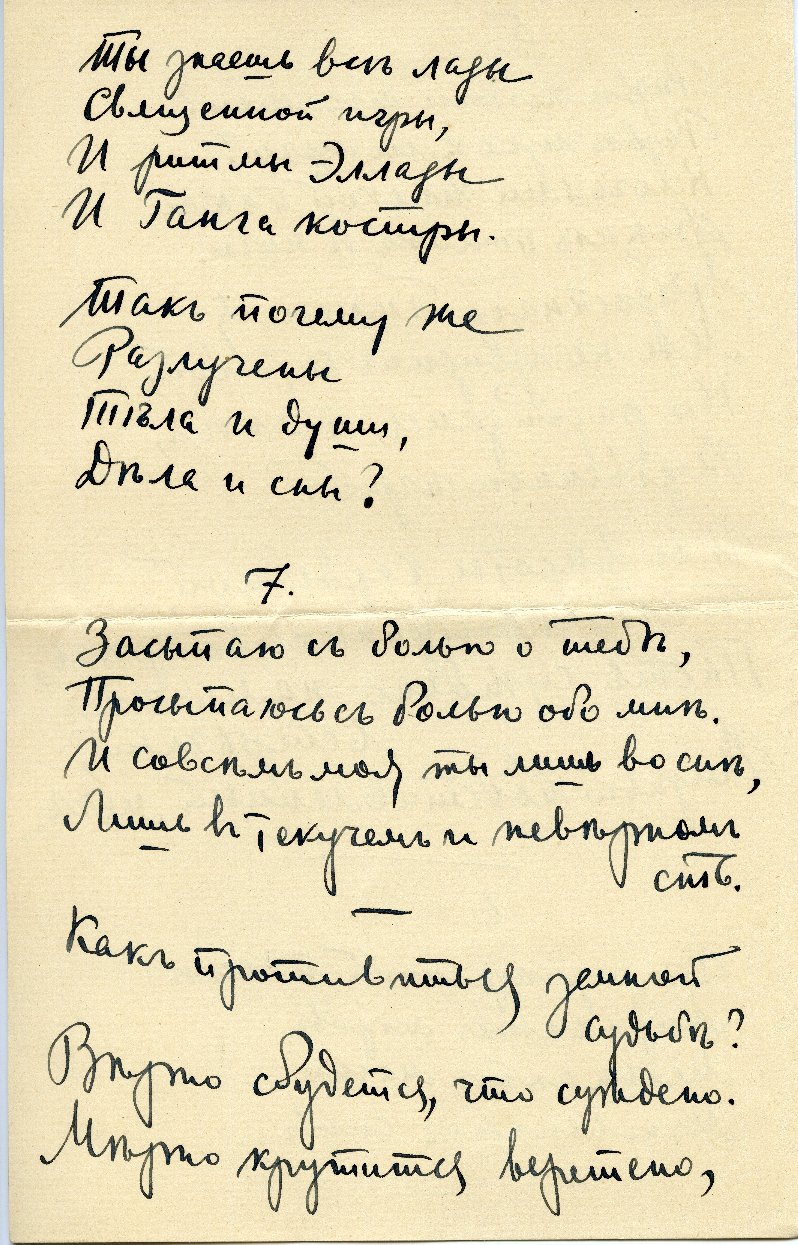 Ты знаешь всѣ лады
Священной игры,
И ритмы Эллады
И Ганга костры.
Такъ почему же
Разлучены
Тѣла и души,
Дѣла и сны?
7.
Засыпаю съ болью о тебѣ,
Просыпаюсь съ болью обо мнѣ.
И совсѣмъ моя ты лишь во снѣ,
Лишь въ текучемъ и невѣрномъ
снѣ.
—
Какъ противиться земной
судьбѣ?
Вѣрно сбудется, что суждено.
Мѣрно крутится веретено,